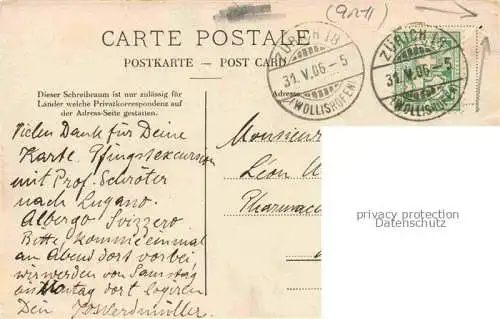 (9211)
CARTE POSTALE
POSTKARTE — POST CARD
Dieser Schreibraum ist nur zulässig für
Länder welche Privatkorrespondenz auf
der Adress-Seite gestatten.
Adresse
ZÜRICH 18
31.V.06-5
(WOLLISHOFEN)
ZÜRICH 18
31.V.06-5
(WOLLISHOFEN)
Vielen Dank für Deine
Karte. Pfingstexcursion
mit Prof. Schröter
nach Lugano.
Albergo Svizzero
Bitte, komme einmal
am Abend dort vorbei
wir werden von Samstag
Montag dort logiren
Dein
Monsieur
Léon
Pharmacie
privacy protection
Datenschutz